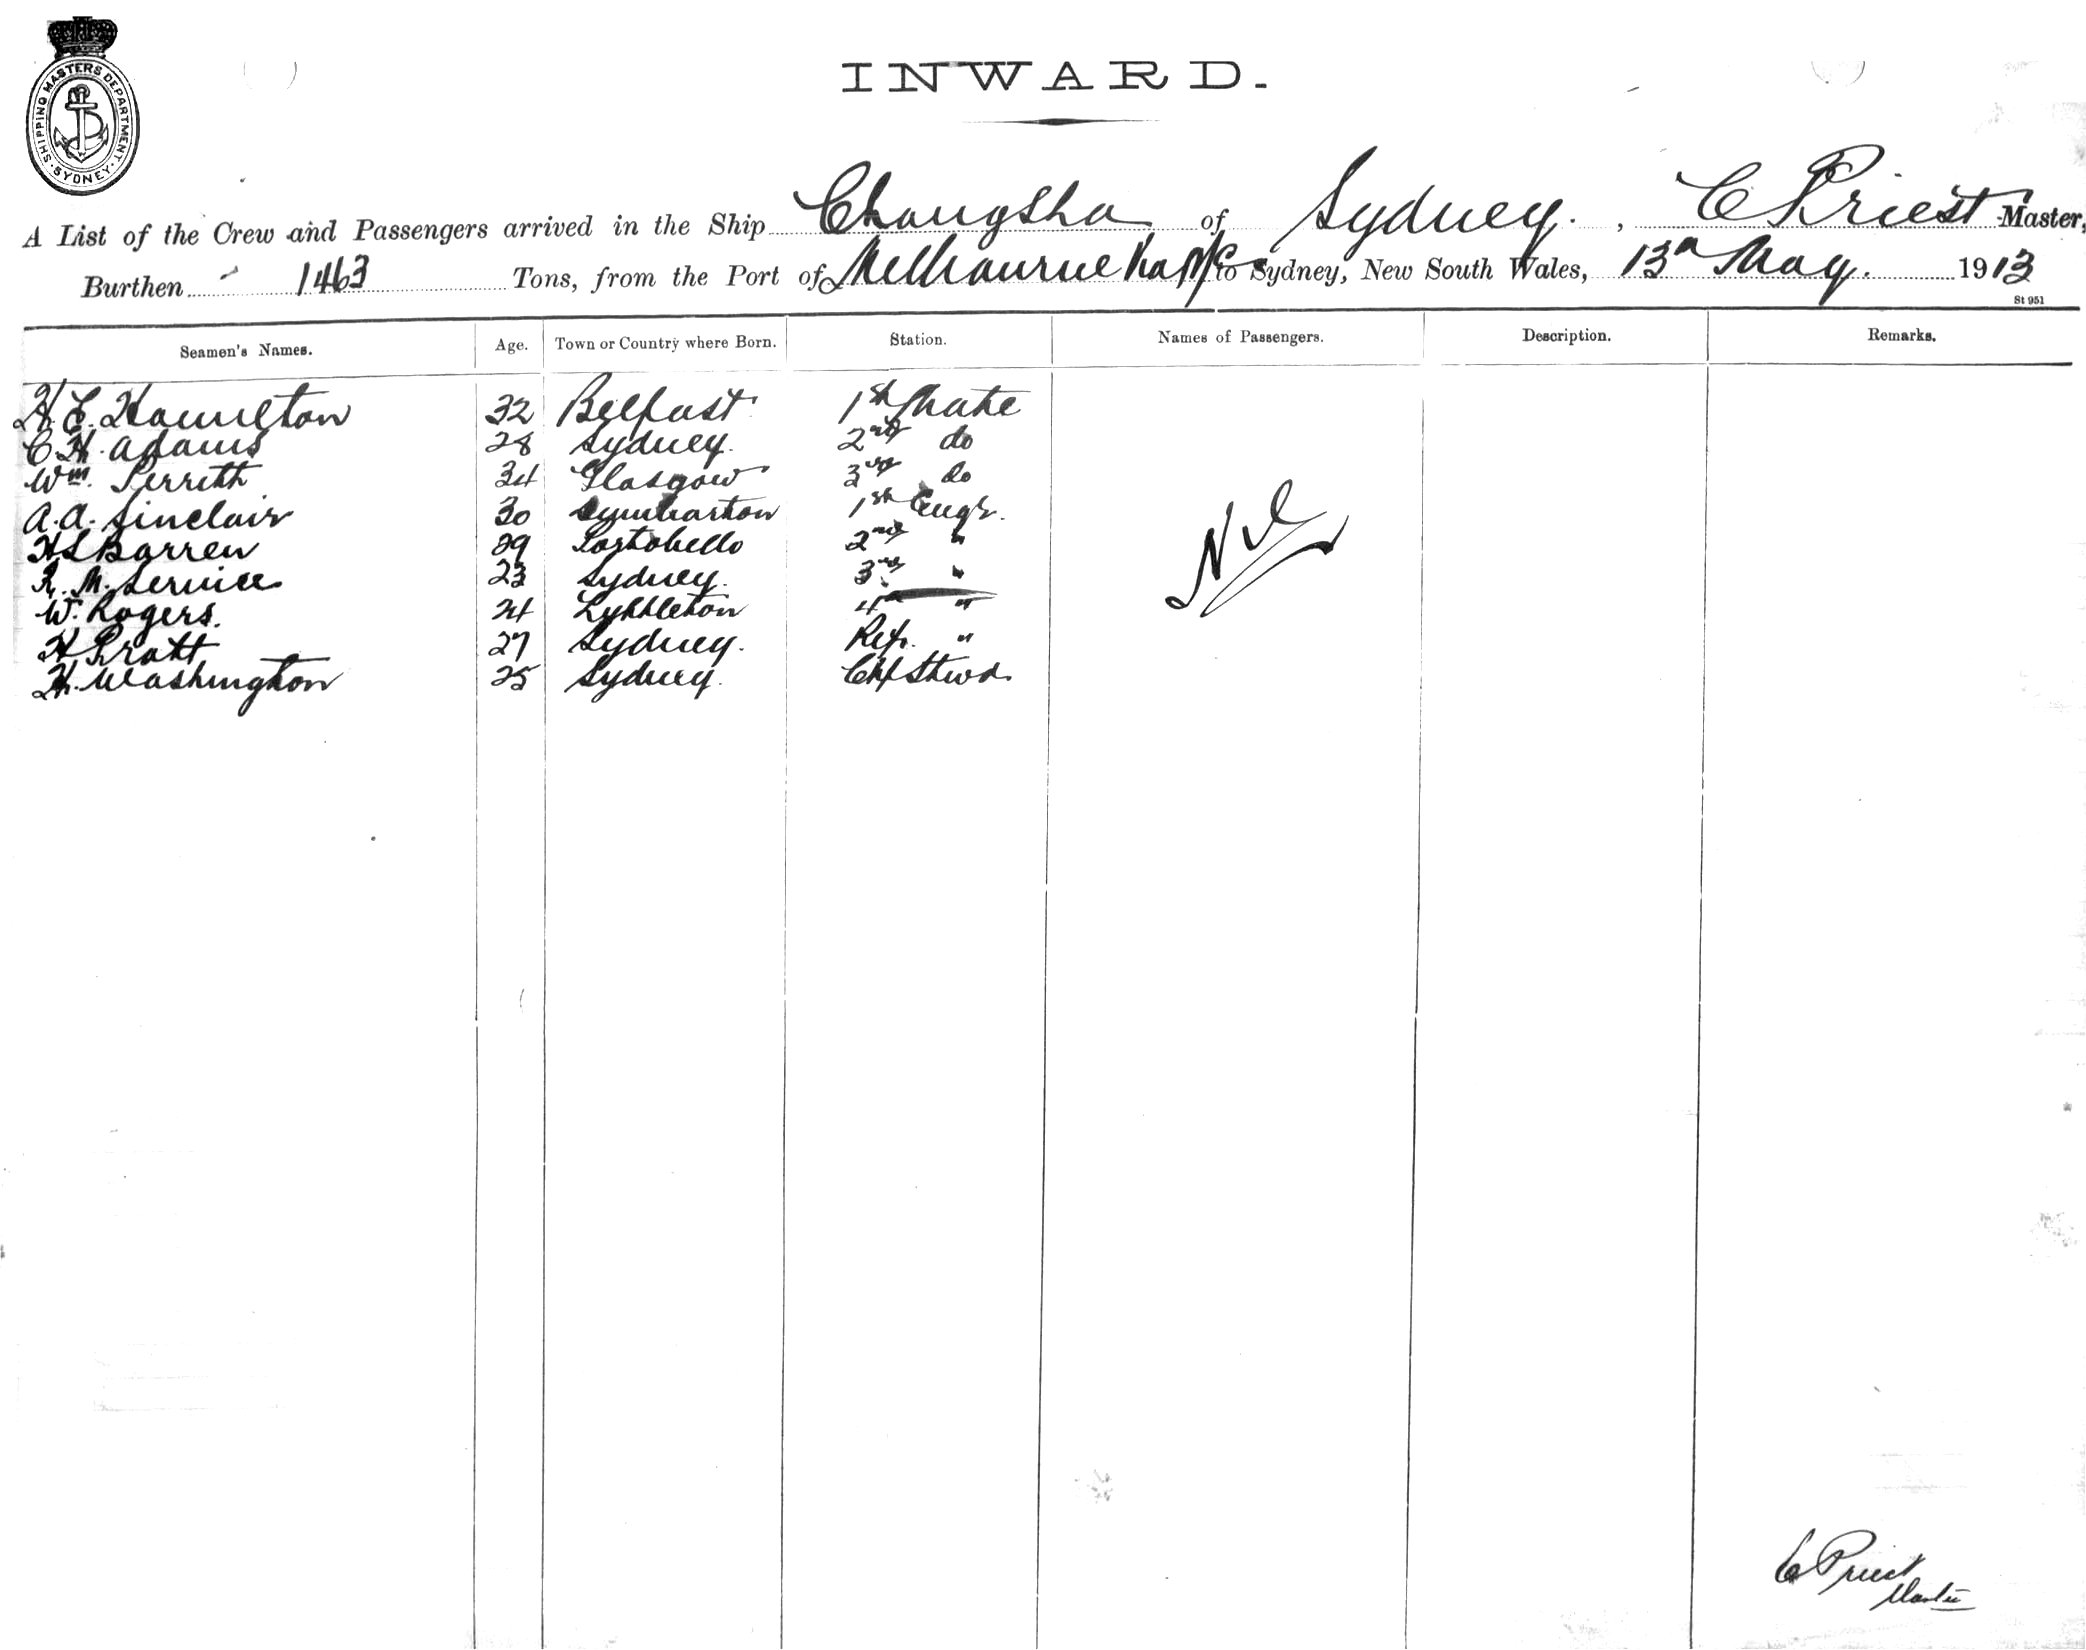 SHIPPING MASTERS DEPARTMENT
SYDNEY
INWARD.
A List of the Crew and Passengers arrived in the Ship Changsha of Sydney. , C Priest Master,
Burthen 1463 Tons, from the Port of Melbourne to Sydney, New South Wales, 13th May. 1913
St 951
Seamen's Names. Age. Town or Country where Born. Station. Names of Passengers. Description. Remarks.
H. E. Hamilton 32 Belfast 1st Mate
C. H. Adams 28 Sydney. 2nd do
Wm. Perrett 34 Glasgow 3rd do
A. A. Sinclair 30 Dumbarton 1st Engr.
H S Barren 29 Portobello 2nd "
R. M. Service 23 Sydney. 3rd "
W. Rogers. 24 Lyttleton 4th "
H Pratt 27 Sydney. Refr. "
H. Washington 25 Sydney. Chf Stwd.
Nil
C Priest
Master